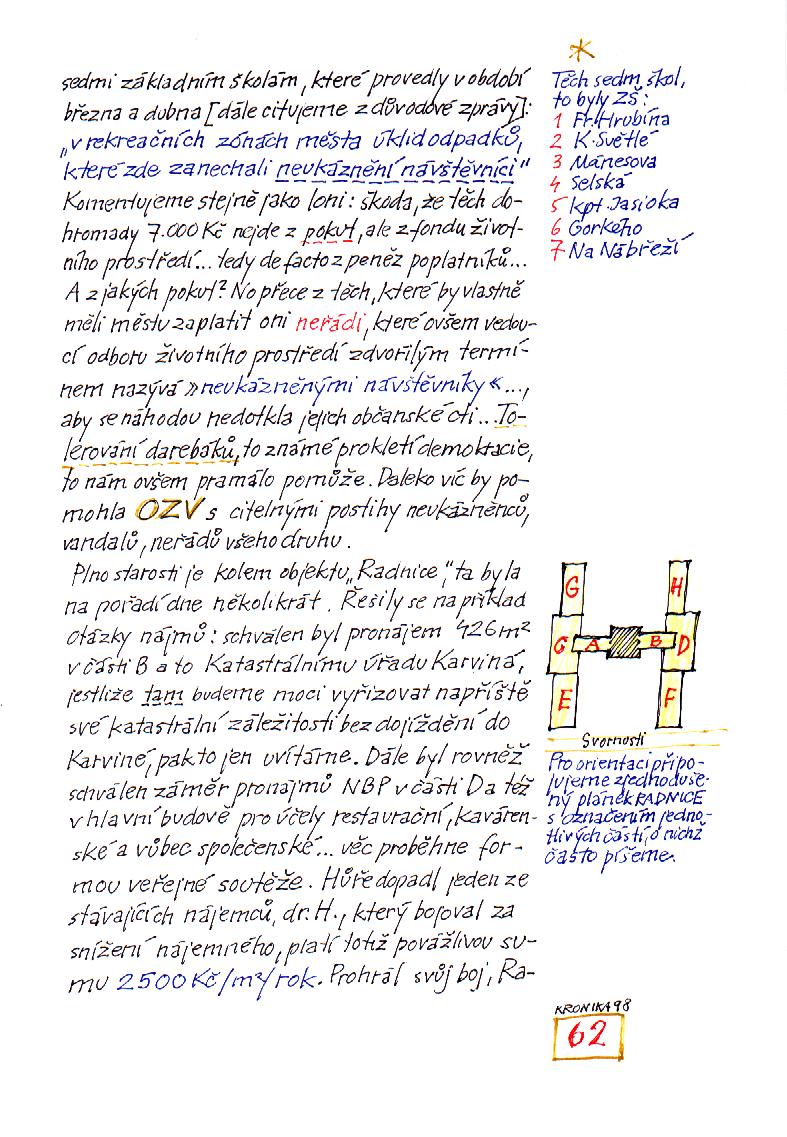 sedmi základním školám, které provedly v období
března a dubna [dále citujeme z důvodové zprávy]:
„v rekreačních zónách města úklid odpadků,
které zde zanechali neukáznění návštěvníci"
Komentujeme stejně jako loni: škoda, že těch do-
hromady 7.000 Kč nejde z pokut, ale z fondu život-
ního prostředí... tedy de facto z peněz poplatníků...
A z jakých pokut? No přece z těch, které by vlastně
měli městu zaplatit oni neřádi, které ovšem vedou-
cí odboru životního prostředí zdvořilým termí-
nem nazývá »neukázněnými návštěvníky«...,
aby se náhodou nedotkla jejich občanské cti... To-
lerování darebáků, to známé prokletí demokracie,
to nám ovšem pramálo pomůže. Daleko víc by po-
mohla OZV s citelnými postihy neukázněnců,
vandalů, neřádů všeho druhu.
Plno starostí je kolem objektu „Radnice," ta byla
na pořadí dne několikrát. Řešily se například
otázky nájmů: schválen byl pronájem 426 m²
v části B a to Katastrálnímu úřadu Karviná,
jestliže tam budeme moci vyřizovat napříště
své katastrální záležitosti bez dojíždění do
Karviné, pak to jen uvítáme. Dále byl rovněž
schválen záměr pronajmů NBP v části D a též
v hlavní budově pro účely restaurační, kaváren-
ské a vůbec společenské... věc proběhne for-
mou veřejné soutěže. Hůře dopadl jeden ze
stávajících nájemců, dr. H., který bojoval za
snížení nájemného, platí totiž povážlivou su-
mu 2500 Kč/m²/rok. Prohrál svůj boj, Ra-
*
Těch sedm škol,
to byly ZŠ:
1 Fr. Hrubína
2 K. Světlé
3 Mánesova
4 Selská
5 Kpt. Jasioka
6 Gorkého
7 Na Nábřeží
G H
C A B D
E F
Svornosti
Pro orientaci připo-
jujeme zjednoduše-
ný plánek RADNICE
s označením jedno-
tlivých částí, o nichž
často píšeme.
KRONIKA 98
62